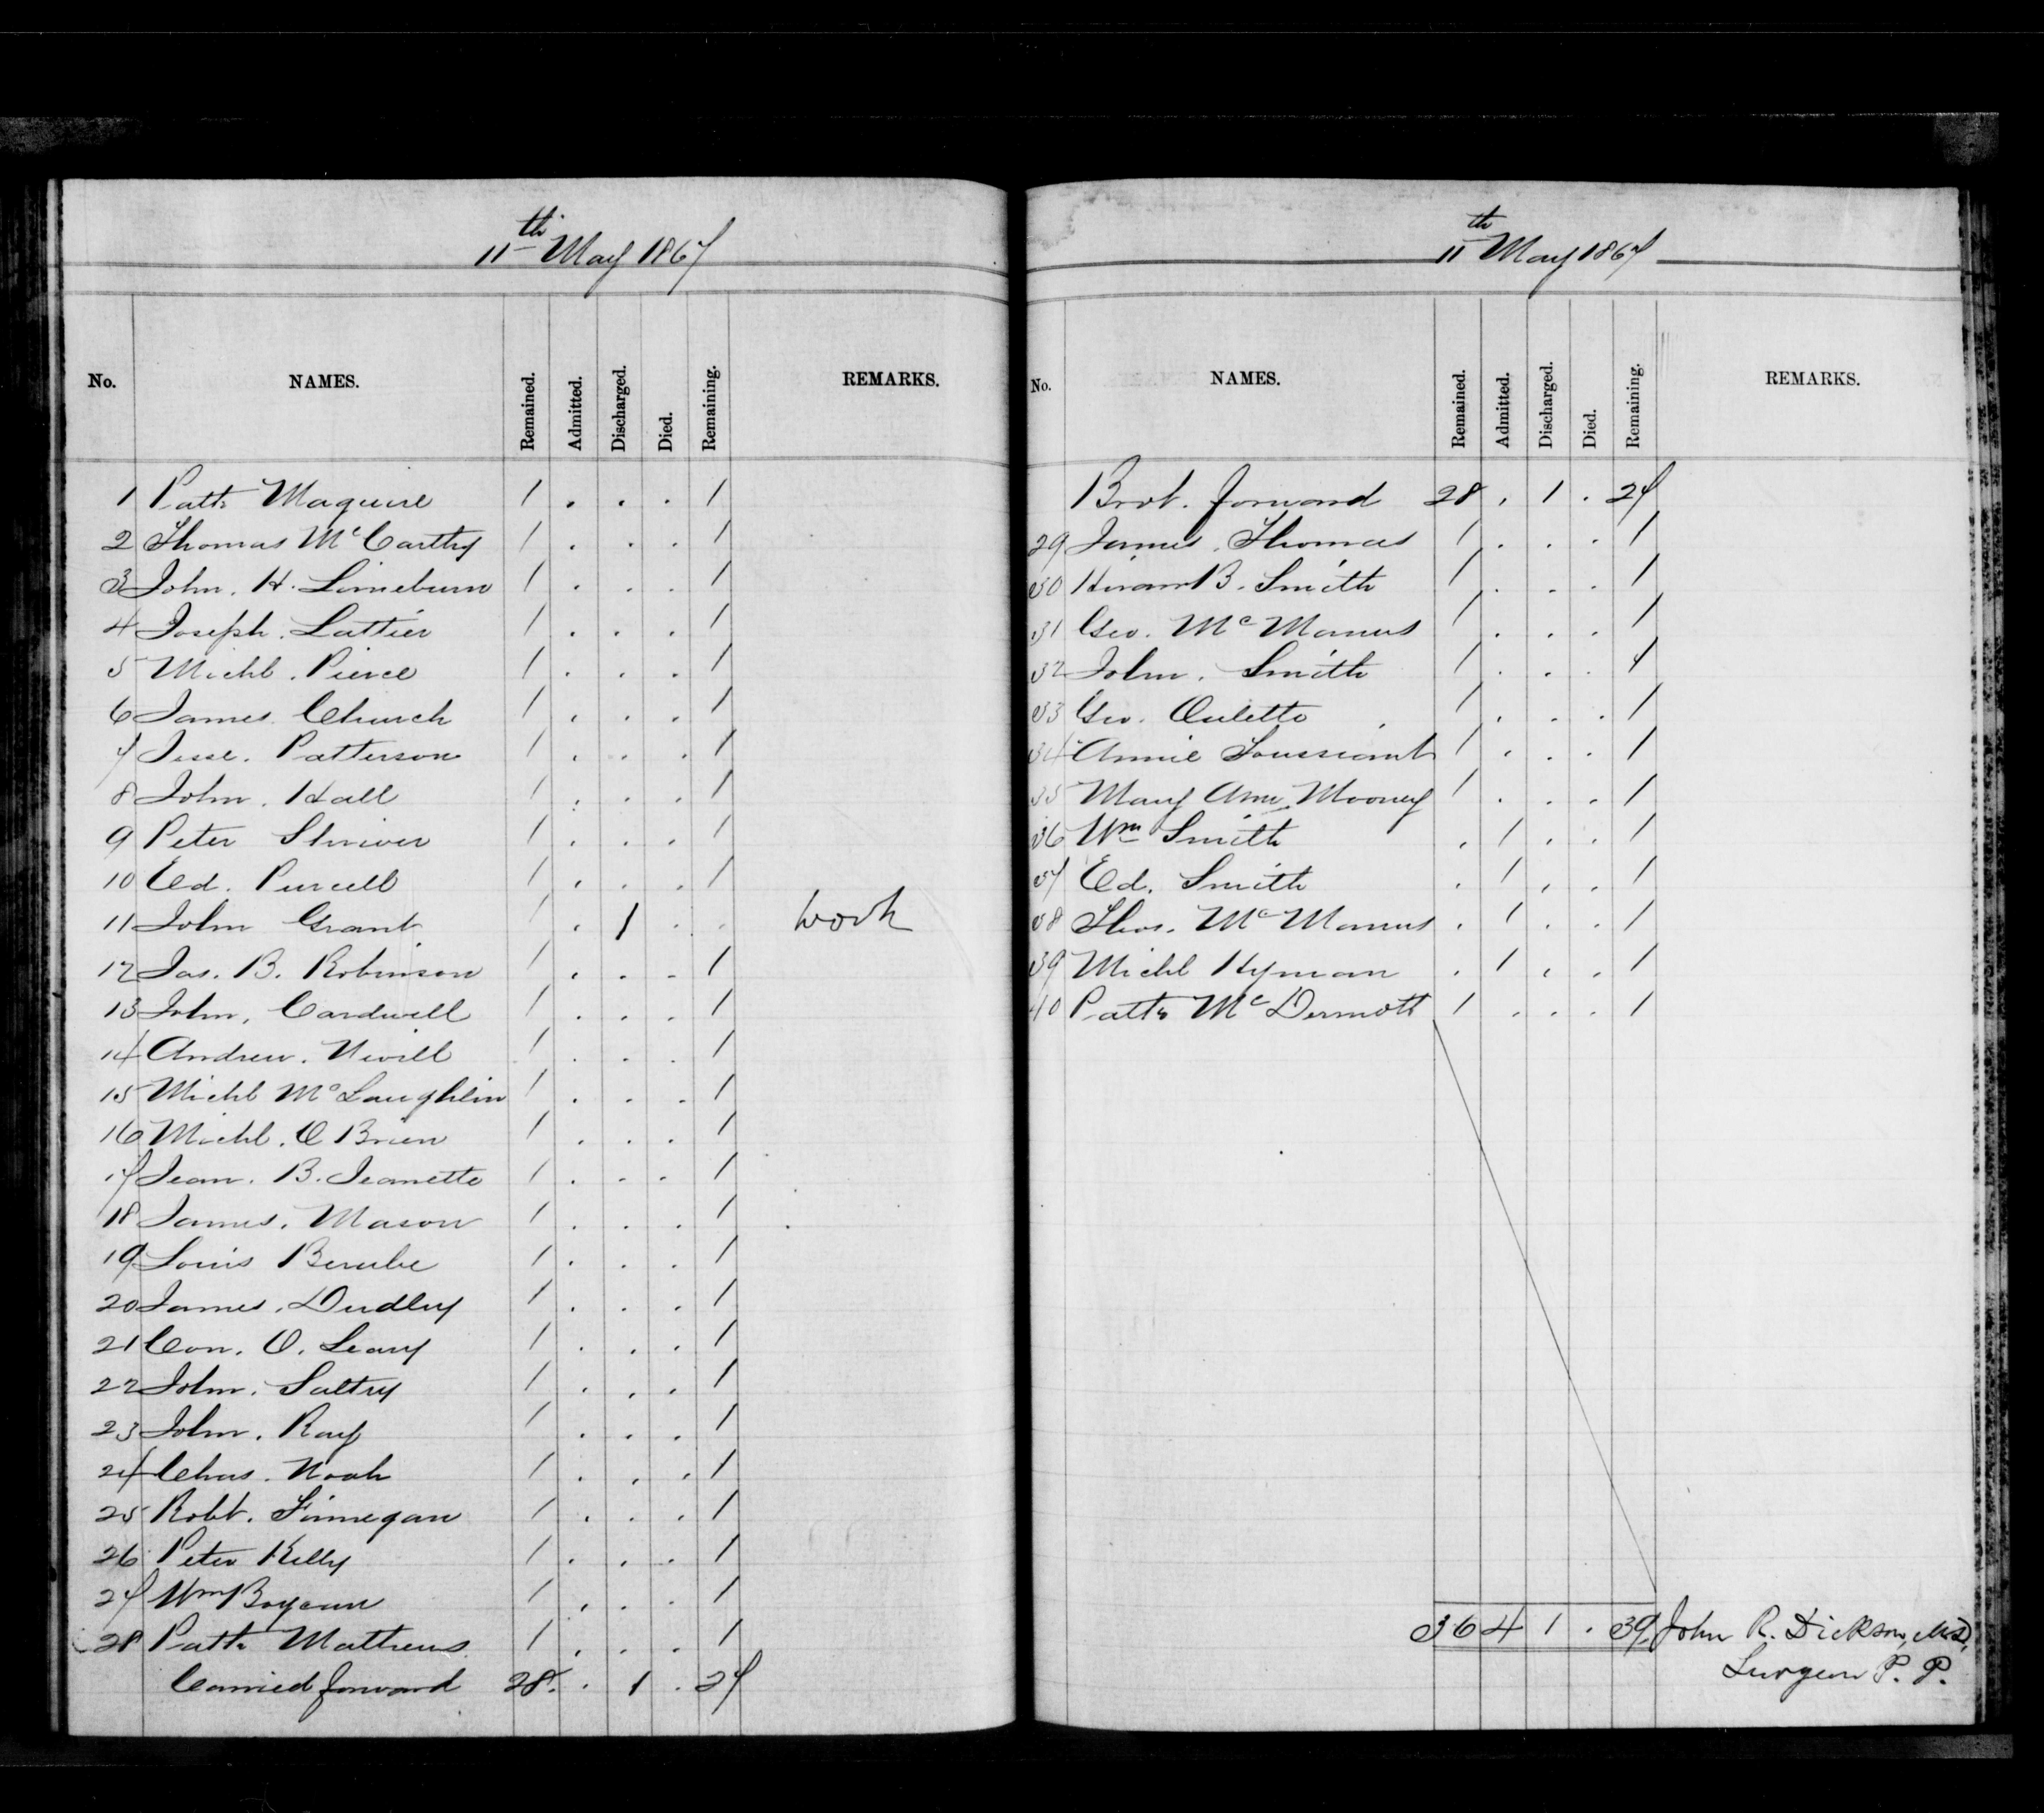 11th May 1867
No. NAMES. Remained. Admitted. Discharged. Died. Remaining. REMARKS.
1 Patk Maguire 1 . . . 1
2 Thomas McCarthy 1 . . . 1
3 John. H. Limeburn 1 . . . 1
4 Joseph. Lattier 1 . . . 1
5 Michl. Pierce 1 . . . 1
6 James. Church 1 . . . 1
7 Jesse. Patterson 1 . . . 1
8 John. Hall 1 . . . 1
9 Peter Shriver 1 . . . 1
10 Ed. Purcell 1 . . . 1
11 John Grant 1 . 1 . . work
12 Jas. B. Robinson 1 . . . 1
13 John. Cardwell 1 . . . 1
14 Andrew. Nevill 1 . . . 1
15 Michl McLaughlin 1 . . . 1
16 Michl. O Brien 1 . . . 1
17 Jean. B. Jeanette 1 . . . 1
18 James. Mason 1 . . . 1
19 Louis Berube 1 . . . 1
20 James. Dudley 1 . . . 1
21 Con. O. Leary 1 . . . 1
22 John. Saltry 1 . . . 1
23 John. Ray 1 . . . 1
24 Chas. Noah 1 . . . 1
25 Robt. Finnegan 1 . . . 1
26 Peter Kelly 1 . . . 1
27 Wm 1 . . . 1
28 Patk Mathews 1 . . . 1
Carried forward 28 . 1 . 27
11th May 1867
No. NAMES. Remained. Admitted. Discharged. Died. Remaining. REMARKS.
Brot. forward 28 . 1 . 27
29 James. Thomas 1 . . . 1
30 Hiram B. Smith 1 . . . 1
31 Geo. McManus 1 . . . 1
32 John. Smith 1 . . . 1
33 Geo. Oulette 1 . . . 1
34 Annie Toussiant 1 . . . 1
35 Mary Ann Mooney 1 . . . 1
36 Wm Smith . 1 . . 1
37 Ed. Smith . 1 . . 1
38 Thos. McManus . 1 . . 1
39 Michl Hyman . 1 . . 1
40 Patk McDermott 1 . . . 1
36 4 1 . 39 John R. Dickson, M.D,
Surgeon P. P.